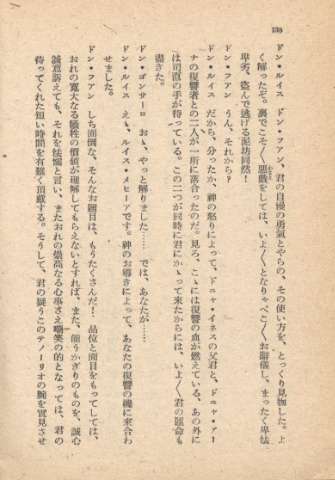 138
ドン・ルイス　ドン・フアン、君の自慢の勇氣とやらの、その使い方を、とつくり見物した。よ
く解つたぞ。裏でこそ〳〵惡戲をしては、いよ〳〵となりやぺこ〳〵お辭儀し、まつたく卑怯
卑劣、盜んで逃げる泥坊同然！
ドン・フアン　うん、それから？
ドン・ルイス　だから、分つたか、神の怒りによつて、ドニヤ・イネスの父君と、ドニヤ・アー
ナの復讐者との二人が一所に落合つたのだ。見ろ、こゝには復讐の血が燃えている。あの外に
は司直の手が待つている。この二つが同時に君にかゝつて來たからには、いよ〳〵君の運命も
盡きた。
ドン・ゴンサーロ　おゝ、やつと解りました……　では、あなたが……
ドン・ルイス　えゝ、ルイス・メヒーアです。神のお導きによつて、あなたの復讐の機に來合わ
せました。
ドン・フアン　しち面倒な、そんなお題目は、もうたくさんだ！　品位と面目をもつてしては、
おれの寬大なる犧牲の價値が理解してもらえないとすれば、また、能うかぎりのものを、誠心
誠意訴えても、それを怯懦と言い、またおれの崇高なる心事さえ嘲笑の的となつては、君の
待つてくれた短い時間を有難く頂戴する。そうして、君の疑うこのテノーリオの腕を實見させ